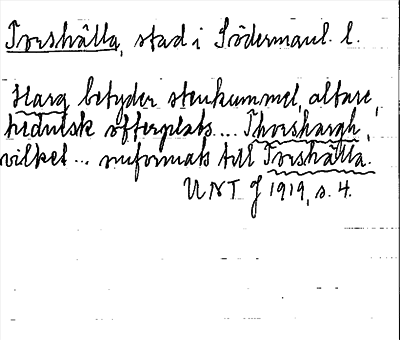 Torshälla, stad i Södermanl. l.
Harg betyder stenkummel, altare,
hednisk offerplats... Thorshargh,
vilket... omformats till Torshälla.
UNT J 1919, s. 4.